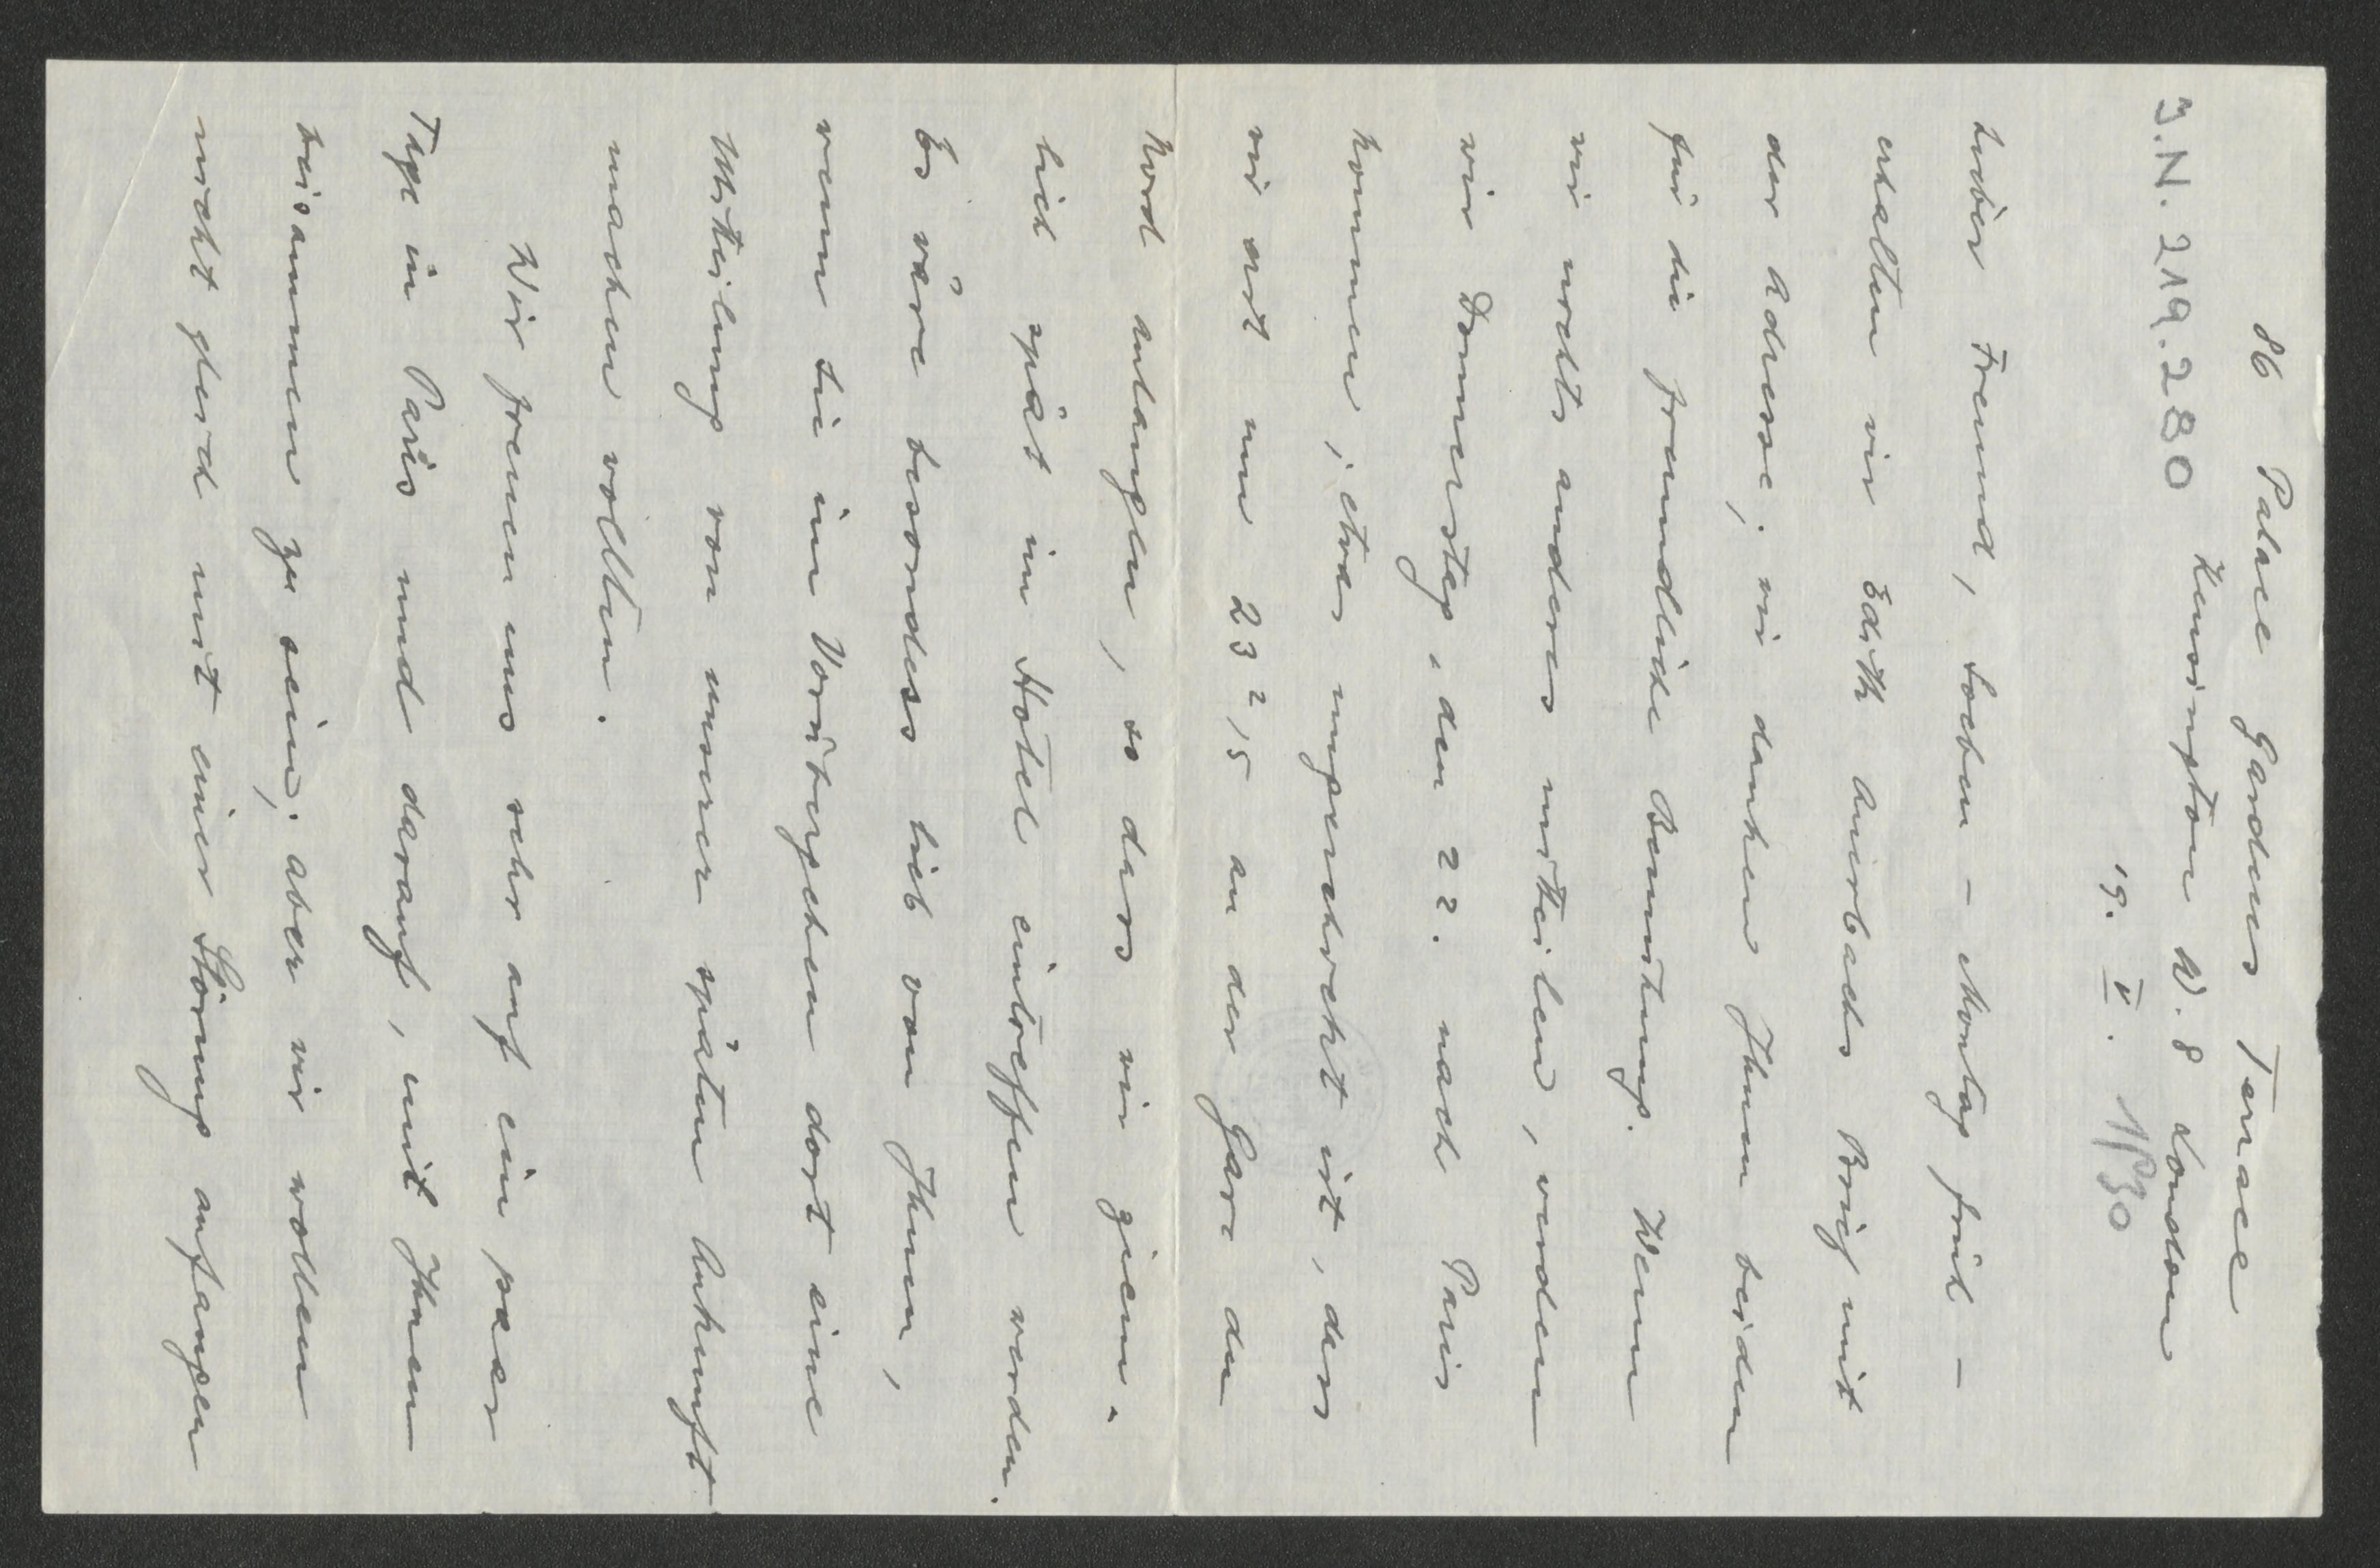 86 Palace Gardens Terrace
J.N. 219.280 Kensington W. 8 London
19. V. 1930
Lieber Freund, soeben – Montag früh –
erhalten wir Edith Auerbachs Brief mit
der Adresse; wir danken Ihnen beiden
für die freundliche Bemühung. Wenn
wir nichts anderes mitteilen, werden
wir Donnerstag, den 22. nach Paris
kommen; etwas ungeschickt ist, dass
wir erst um 23 an der Gare du
Nord anlangen, so dass wir ziem-
lich spät im Hotel eintreffen werden.
Es wäre besonders lieb von Ihnen,
wenn Sie im Vorübergehen dort eine
Mitteilung von unserer späten Ankunft
machen wollten.
Wir freuen uns sehr auf ein paar
Tage in Paris und darauf, mit Ihnen
beisammen zu sein; aber wir wollen
nicht gleich mit einer Störung anfangen